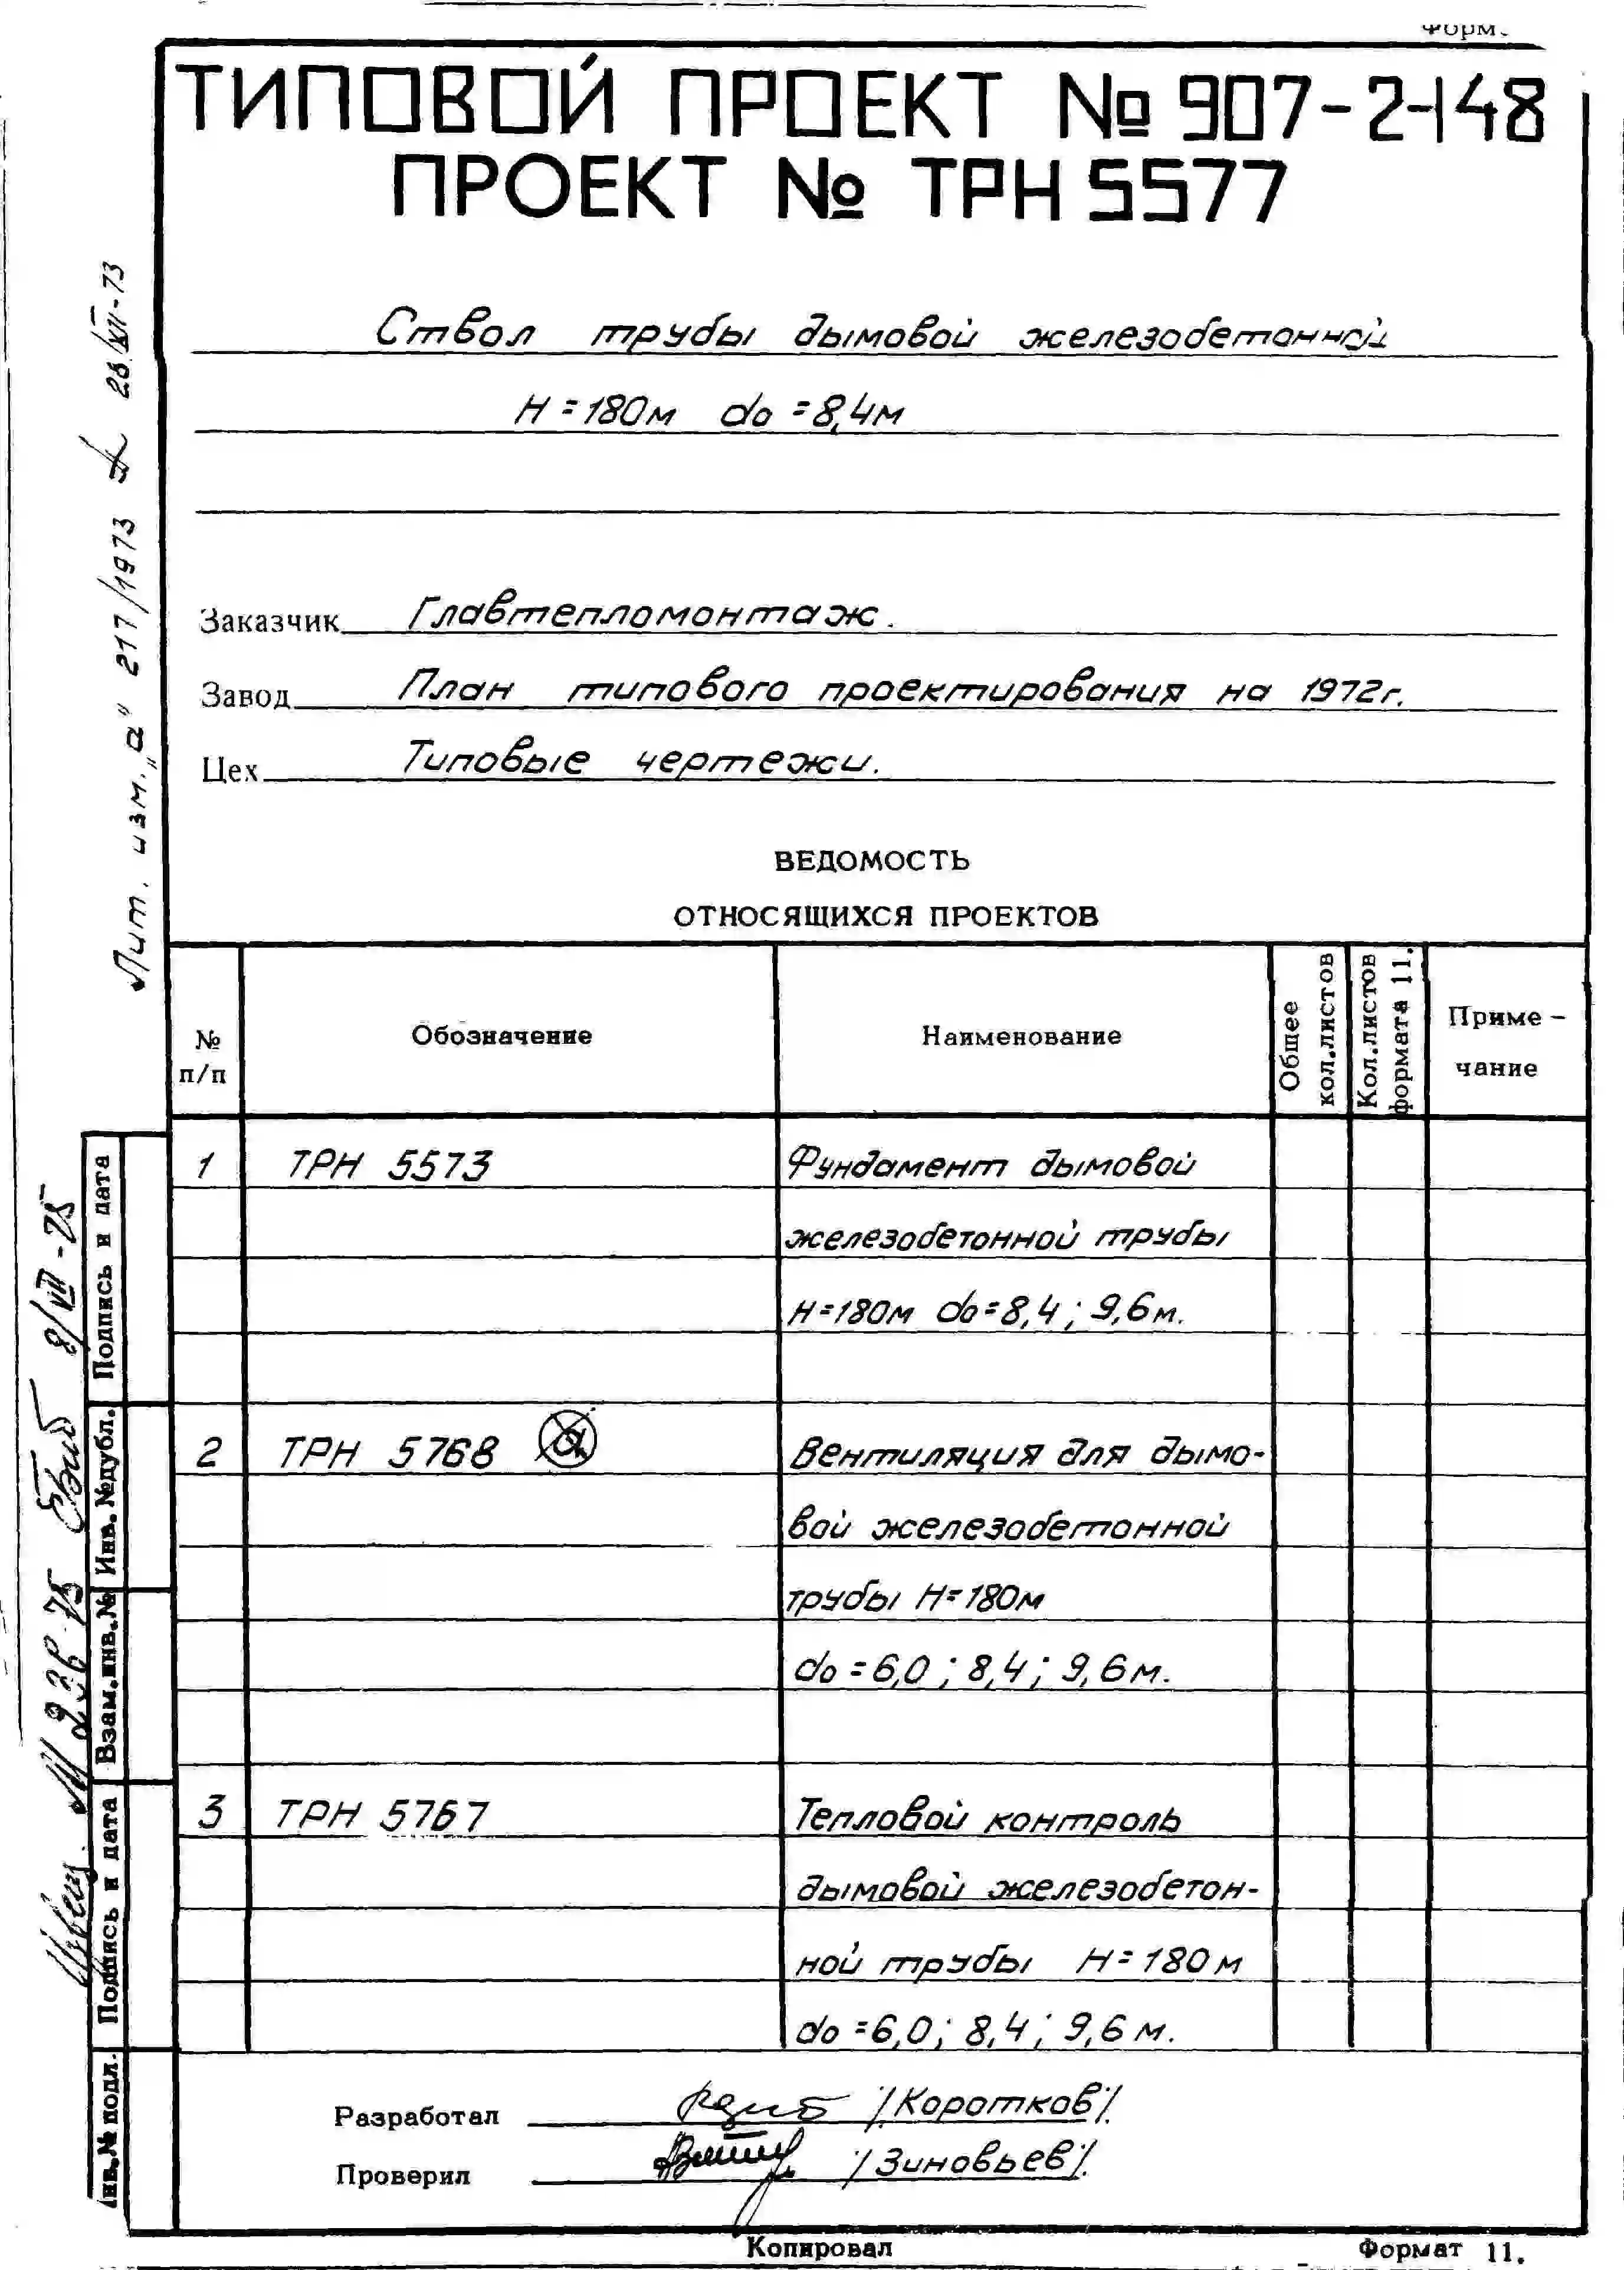 Форм.
ТИПОВОЙ ПРОЕКТ № 907-2-148
ПРОЕКТ № ТРН 5577
Ствол трубы дымовой железобетонной
Н=180м do=8,4м
Заказчик Главтепломонтаж.
Завод План типового проектирования на 1972г.
Цех Типовые чертежи.
ВЕДОМОСТЬ
ОТНОСЯЩИХСЯ ПРОЕКТОВ
№ п/п
Обозначение
Наименование
Общее кол.листов
Кол.листов формата 11.
Приме-
чание
1 ТРН 5573 Фундамент дымовой
железобетонной трубы
Н=180м do=8,4; 9,6м.
2 ТРН 5768 а Вентиляция для дымо-
вой железобетонной
трубы Н=180м
do=6,0; 8,4; 9,6м.
3 ТРН 5767 Тепловой контроль
дымовой железобетон-
ной трубы Н=180м
do=6,0; 8,4; 9,6м.
Разработал /Коротков/
Проверил /Зиновьев/
Копировал
Формат 11.
Лит. изм. „а" 217/1973 26/XII-73
Подпись и дата
Инв.№дубл.
Взам.инв.№
Подпись и дата
Инв.№ подл.
8/VII-75